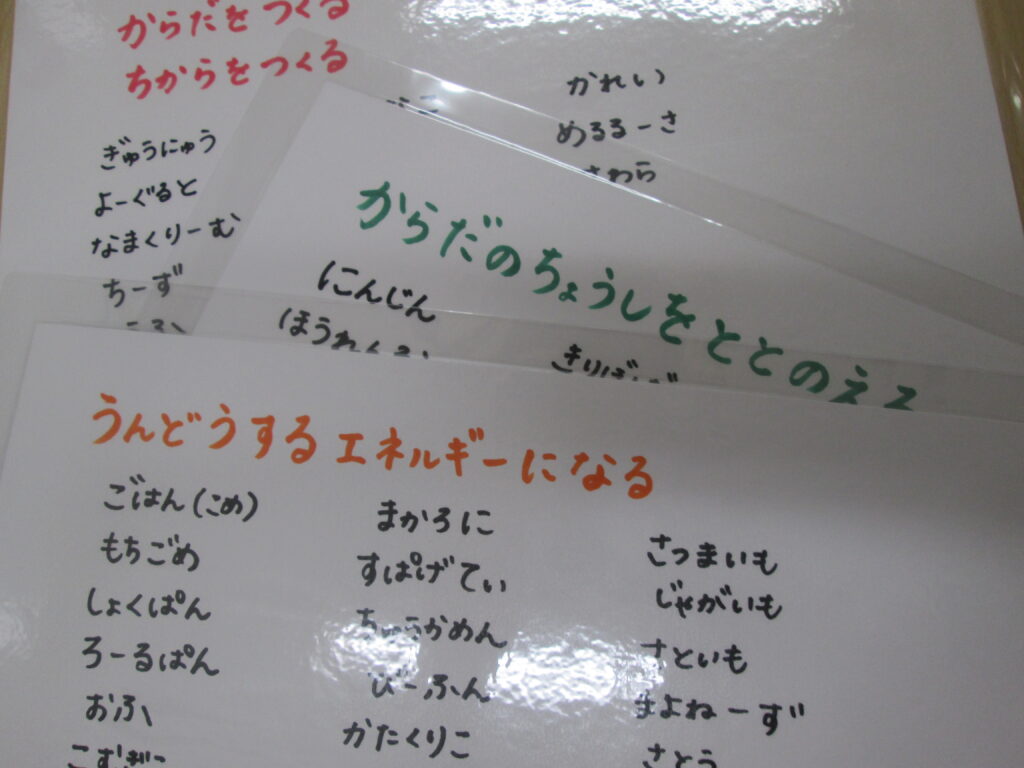 からだをつくる
ちからをつくる
ぎゅうにゅう
よーぐると
なまくりーむ
ちーず
かれい
めるるーさ
さわら
からだのちょうしをととのえる
にんじん
うんどうするエネルギーになる
ごはん(こめ)
もちごめ
しょくぱん
ろーるぱん
おふ
こむぎこ
まかろに
すぱげてぃ
ちゅうかめん
びーふん
かたくりこ
さつまいも
じゃがいも
さといも
まよねーず
さとう